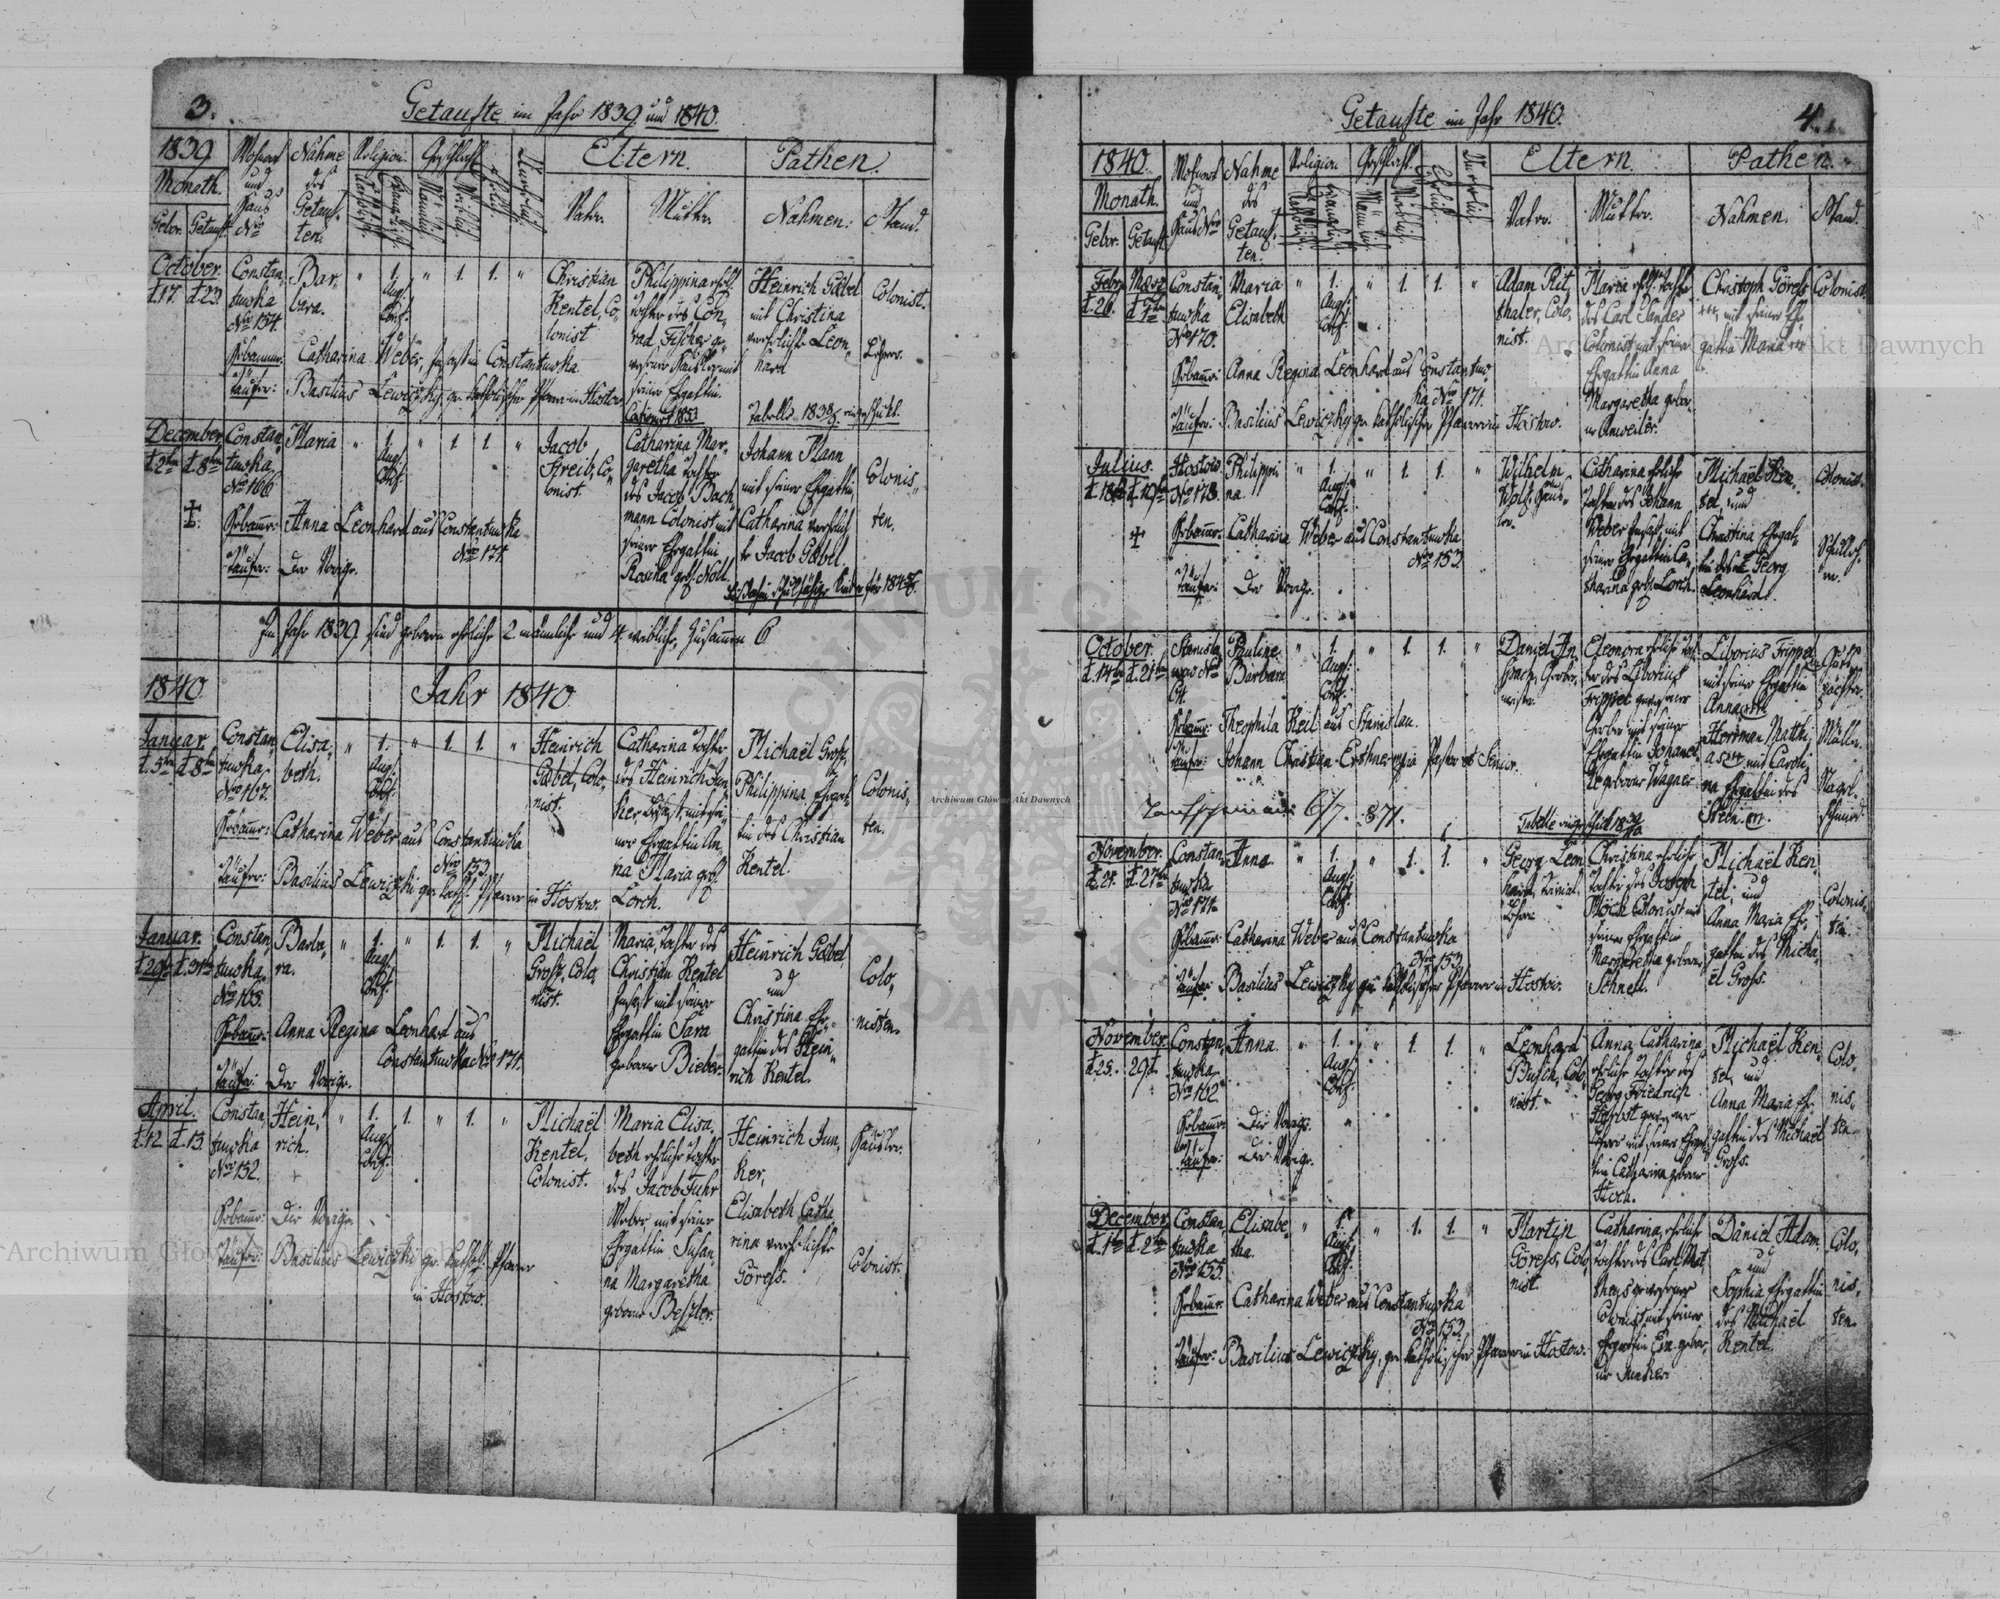 3.
Getaufte im Jahr 1839 und 1840.
1839
Monath.
Gebor. Getauft.
Wohnort und Haus Nro
Nahme des Getauf-ten.
Religion.
Katholisch
Evangelisch
Geschlecht
Männlich
Weiblich
Ehelich
Unehelich
Eltern.
Vater.
Mutter.
Pathen.
Nahmen:
Stand.
October.
d. 17. d. 23.
Constan,
tuwka
Nro 154.
Bar,
bara.
" 1. " 1. 1. "
Aug:
Conf:
Christian
Kentel, Co,
lonist
Philippina ehl.
Tochter des Con,
rad Fischer ge,
wesener Häusler mit
seiner Ehgattin.
Heinrich Göbel
mit Christina
verehlichte Leon,
hard
Colonist.
Lehrer.
Hebamme: Catharina Weber, Insassin Constantuwka
Täufer: Basilius Lewiczky, gr. katholischer Pfarrer in Hostow
Tabelle 1838/9 eingeschickt.
December
d. 2ten d. 8ten
Constan,
tuwka,
Nro 166
Maria
" 1. " 1. 1. "
Aug:
Conf:
Jacob
Spreib, Co,
lonist.
Catharina Mar,
garetha Tochter
des Jacob Bach,
mann Colonist mit
seiner Ehgattin
Rosina geb. Noll.
Johann Mann
mit seiner Ehgattin,
Catharina verehlich,
te Jacob Göbel.
Colonis,
ten.
Hebamme: Anna Leonhard aus Constantuwka
Nro 171.
Täufer: Der Vorige.
Im Jahr 1839 sind geboren eheliche 2 männliche und 4 weibliche, Zusammen 6
1840
Jahr 1840
Januar.
d. 5ten d. 8ten
Constan,
tuwka,
Nro 167.
Elisa,
beth.
" 1. " 1. 1. "
Aug:
Conf:
Heinrich
Göbel, Colo,
nist.
Catharina Tochter
des Heinrich Jun,
ker Insaß, mit sei,
ner Ehgattin An,
na Maria geb.
Lorch.
Michaël Groß,
Philippina, Ehgat,
tin des Christian
Kentel.
Colonis,
ten.
Hebamme: Catharina Weber aus Constantuwka
Nro 153.
Täufer: Basilius Lewiczki gr. kathl. Pfarrer in Hostow.
Januar.
d. 29ten d. 31ten
Constan,
tuwka,
Nro 165.
Barba,
ra.
" 1. " 1. 1. "
Aug:
Conf:
Michaël
Groß, Colo,
nist.
Maria, Tochter des
Christian Kentel
Insaß mit seiner
Ehgattin Sara
geborne Bieber.
Heinrich Göbel,
und
Christina Eh,
gattin des Hein,
rich Kentel.
Colo,
nisten.
Hebamme: Anna Regina Leonhard aus
Constantuwka Nro 171.
Täufer: Der Vorige.
April.
d. 12. d. 13.
Constan,
tuwka
Nro 152.
Hein,
rich.
" 1. 1. " 1. "
Aug:
Conf:
Michaël
Kentel,
Colonist.
Maria Elisa,
beth ehliche Tochter
des Jacob Fuhr
Weber mit seiner
Ehgattin Susan,
na Margaretha
geborne Beßler.
Heinrich Jun,
ker,
Elisabeth Catha
rina verehlichte
Göreß.
Häusler.
Colonist.
Hebamme: Die Vorige.
Täufer: Basilius Lewiczki gr. kathl. Pfarrer
in Hostow.
4.
Getaufte im Jahr 1840.
1840.
Monath.
Gebor. Getauft.
Wohnort und Haus Nro
Nahme des Getauf,ten.
Religion.
Katholisch
Evangelisch
Geschlecht.
Männlich
Weiblich
Ehelich
Unehelich
Eltern.
Vater.
Mutter.
Pathen.
Nahmen.
Stand.
Febr. März
d. 26. d. 7ten
Constan,
tuwka
Nro 170.
Maria
Elisabeth
" 1. " 1. 1. "
Aug:
Conf:
Adam Rit,
thaler, Colo,
nist.
Maria ehl. Tochter
des Carl Sander
Colonist mit seiner
Ehgattin Anna
Margaretha gebor,
ne Anweiler.
Christoph Göreß
mit seiner Eh,
gattin Maria
Colonist.
Hebamme: Anna Regina Leonhard aus Constantuw,
ka Nro 171.
Täufer: Basilius Lewiczky gr. katholischer Pfarrer in Hostow.
Julius.
d. 18ten d. 19ten
Hostow.
Nro 178.
Philippi
na.
" 1. " 1. 1. "
Aug:
Conf:
Wilhelm
Wolf, Häus,
ler.
Catharina ehliche
Tochter des Johann
Weber Insaß, mit
seiner Ehgattin Ca,
tharina geb. Lorch.
Michaël Ken,
tel, und
Christina Ehgat,
tin des Georg
Leonhard.
Colonist.
Schulleh,
rer.
Hebamme: Catharina Weber aus Constantuwka
Nro 153
Täufer: Der Vorige.
October.
d. 14ten d. 21ten
Stanisla,
wow Nro
Pauline
Barbara
" 1. " 1. 1. "
Aug:
Conf:
Daniel An,
Gerber,
meister.
Eleonora ehliche Toch,
ter des Liborius
Frippel gewesener
Gerber mit seiner
Ehgattin Johanet,
te geborne Wagner
Liborius Frippel
mit seiner Ehgattin
Anna
Herrman Matthi,
as mit Caroli,
na Ehgattin des
Stein
Guts,
pächter.
Müller.
Nagel,
schmied.
Hebamme: Theophila Keil aus Stanislau.
Täufer: Johann Christian Pastor et Senior.
Taufschein 6/7. 871.
Tabelle eingeschickt 1839/40
November.
d. 21. d. 27ten
Constan,
tuwka
Nro 171.
Anna
" 1. " 1. 1. "
Aug:
Conf:
Georg Leon,
hard,
Lehrer.
Christina, ehliche
Tochter des Joseph
Möck Colonist mit
seiner Ehgattin
Margaretha geborne
Schnell.
Michaël Ken,
tel, und
Anna Maria Eh,
gattin des Micha,
ël Groß.
Colonis,
ten.
Hebamme: Catharina Weber aus Constantuwka
Nro 153.
Täufer: Basilius Lewiczky gr. katholischer Pfarrer in Hostow.
November.
d. 25. 29t.
Constan,
tuwka,
Nro 162.
Anna.
" 1. " 1. 1. "
Aug:
Conf:
Leonhard
Busch, Colo,
nist.
Anna Catharina,
ehliche Tochter des
Georg Friedrich
Herbst gewesener
Lehrer mit seiner Ehgat,
tin Catharina geborne
Hoch.
Michaël Ken
tel, und
Anna Maria Eh,
gattin des Michaël
Groß.
Colo,
nis,
ten.
Hebamme: Die Vorige.
Täufer: Der Vorige.
December.
d. 1ten d. 2ten
Constan,
tuwka
Nro 155.
Elisabe,
tha.
" 1. " 1. 1. "
Aug:
Conf:
Martin
Göreß, Colo,
nist.
Catharina, ehliche
Tochter des Carl Mat,
theys gewesener
Colonist mit seiner
Ehgattin Eva gebor,
ne Junker.
Daniel Adam.
und
Sophia Ehgattin
des Michaël
Kentel.
Colo,
nis,
ten.
Hebamme: Catharina Weber aus Constantuwka
Nro 153.
Täufer: Basilius Lewiczky, gr. katholischer Pfarrer in Hostow.
Archiwum Główne Akt Dawnych